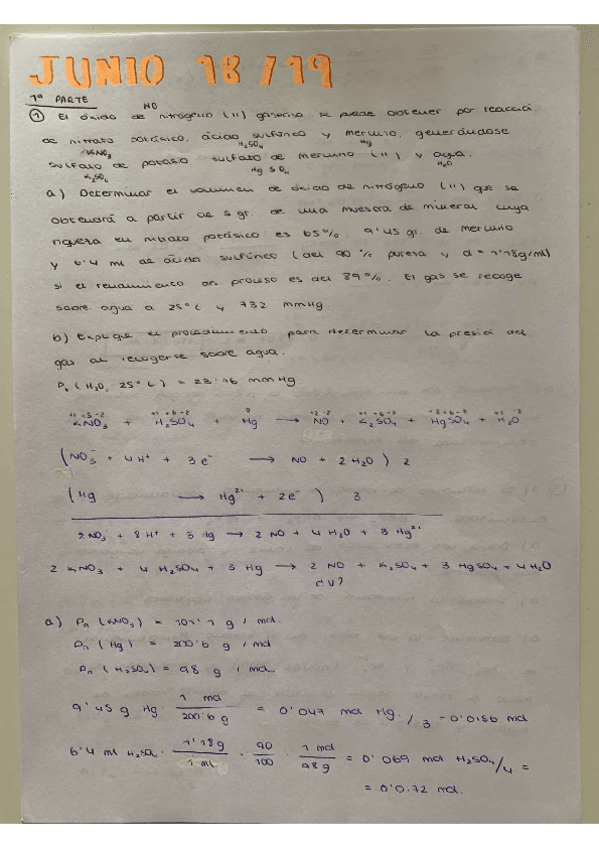 JUNIO 18/19
1ª PARTE
NO
① El óxido de nitrógeno (II) gaseoso se puede obtener por reacció
de nitrato potásico, ácido sulfúrico y mercurio, generándose
KNO₃ H₂SO₄ Hg
sulfato de potasio sulfato de mercurio (II) y agua.
K₂SO₄ HgSO₄ H₂O
a) Determinar el volumen de óxido de nitrógeno (II) que se
obtendrá a partir de 5 gr. de una muestra de mineral cuya
riqueza en nitrato potásico es 65%, 9'45 gr. de mercurio
y 6'4 ml de ácido sulfúrico (del 90% pureza y d = 1'18g/ml)
si el rendimiento del proceso es del 89%. El gas se recoge
sobre agua a 25°C y 732 mmHg.
b) Explique el procedimiento para determinar la presió del
gas al recogerse sobre agua.
(H₂O, 25°C) = 23'76 mmHg
+1 +5 -2 +1 +6 -2 0 +2 -2 +1 +6 -2 +2 +6 -2 +1 -2
KNO₃ + H₂SO₄ + Hg → NO + K₂SO₄ + HgSO₄ + H₂O
(NO₃⁻ + 4H⁺ + 3e⁻ → NO + 2H₂O) 2
(Hg → Hg²⁺ + 2e⁻) 3
2NO₃ + 8H⁺ + 3Hg → 2NO + 4H₂O + 3Hg²⁺
2KNO₃ + 4H₂SO₄ + 3Hg → 2NO + K₂SO₄ + 3HgSO₄ + 4H₂O
¿V?
a) Pm (KNO₃) = 101'1 g / mol.
Pm (Hg) = 200'6 g / mol
Pm (H₂SO₄) = 98 g / mol.
9'45 g Hg · 1 mol / 200'6 g = 0'047 mol Hg / 3 = 0'0156 mol
6'4 ml H₂SO₄ · 1'18g / 1 ml · 90 / 100 · 1 mol / 98 g = 0'069 mol H₂SO₄ / 4 =
= 0'0.72 mol.